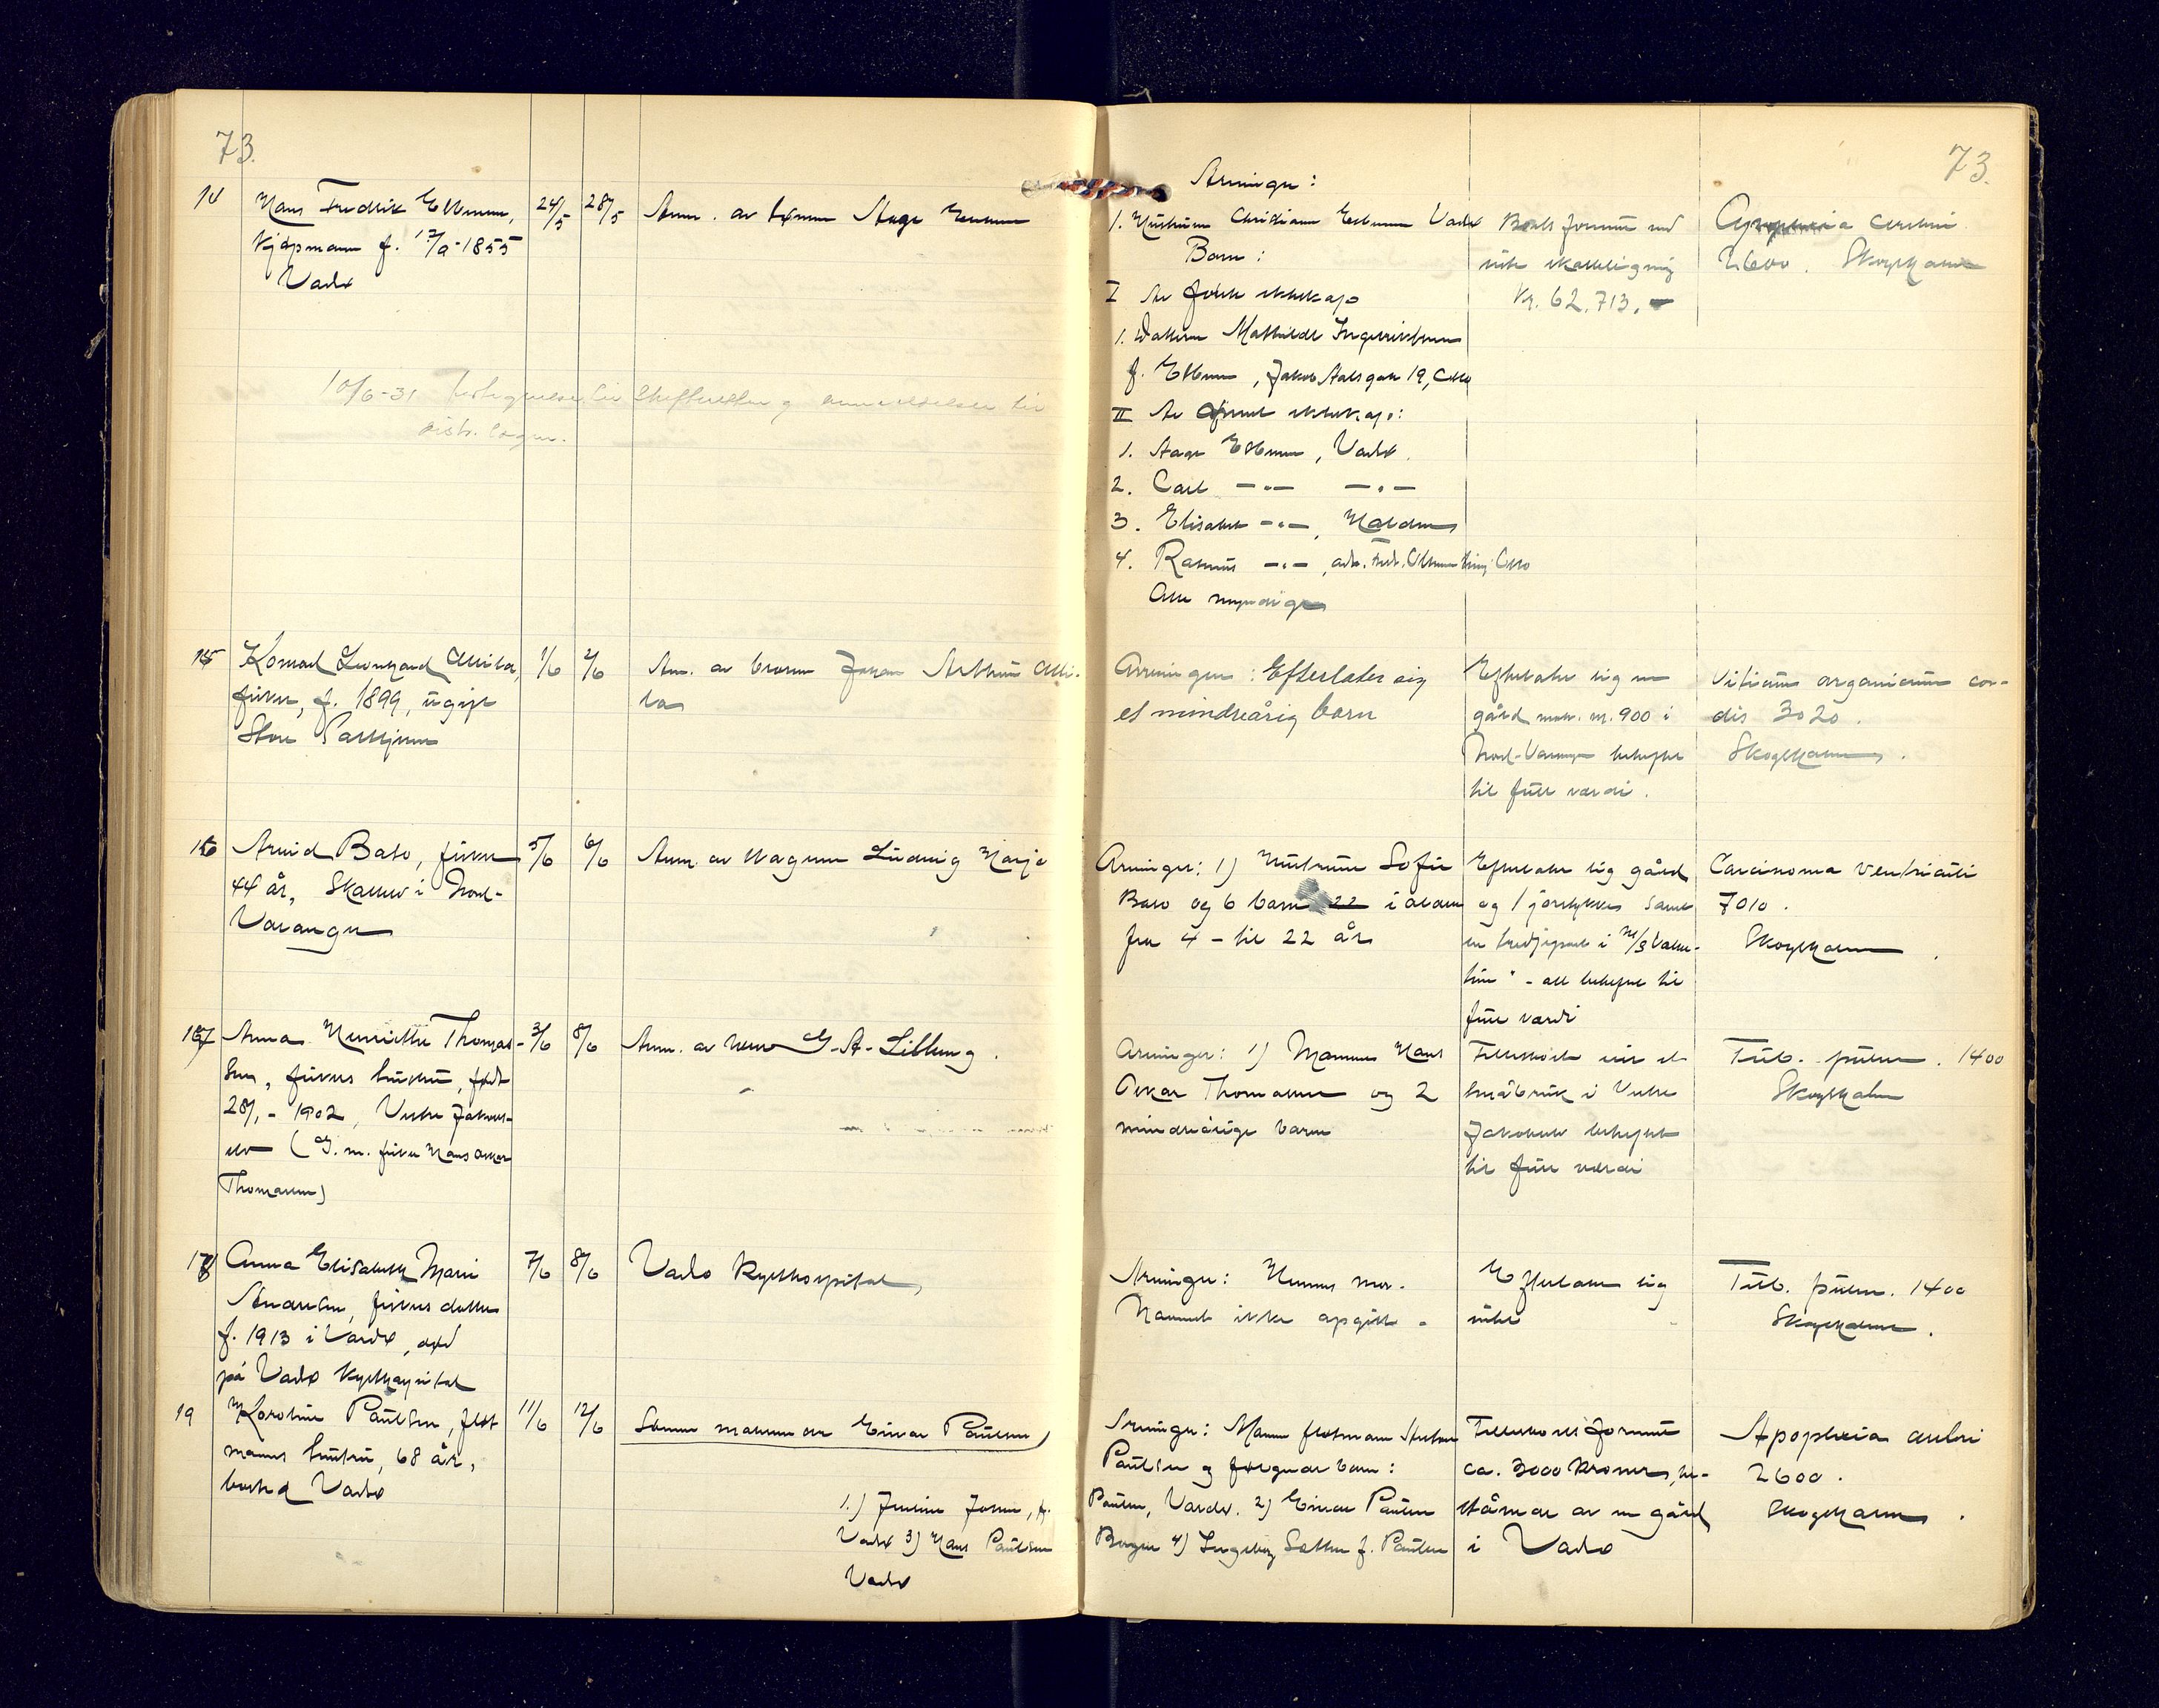 73.
14
Hans Fredrik Esbensen,
kjøpmann f. 17/9-1855
Vadsø
24/5
28/5
Anm. av sønnen Aage Esbensen
10/6-31 til skifteretten og anmeldelsen til
distr. lægen.
15
Konrad Leonhard
fisker, f. 1899, ugift
Store
1/6
2/6
Anm. av broren Johan Arthur
16
Arvid Baso, fisker
44 år, Skallelv i Nord-
Varanger
5/6
6/6
Anm. av Magnus Ludvig Harjo
17
Anna Henriette Thomas-
sen, fiskers hustru, født
28/1-1902, Vestre Jakobs-
elv (G. m. fisker Hans Oskar
Thomassen)
3/6
8/6
Anm. av G. A.
18
Anna Elisabeth Marie
Andersen, fiskers datter
f. 1913 i Vardø, død
på Vadsø kysthospital
7/6
8/6
Vadsø kysthospital
19
Karoline Paulsen, fløt
manns hustru, 68 år,
bosted Vadsø
11/6
12/6
Sønnen Einar Paulsen
1.) Jensen, f.
Vadsø 3) Hans Paulsen
Vadsø
73.
Arvinger:
1. Hustruen Christiane Esbensen Vadsø
Barn:
I Av første ekteskap
1. Datteren Mathilde Ingebrigtsen
f. Esbensen, Jakob Aalsgate 19, Oslo
II Av annet ekteskap:
1. Aage Esbensen, Vadsø.
2. Carl —"— —"—
3. Elisabet —"—, Halden
4. Rasmus —"—, Oslo
Alle myndige
Boets formue ved
siste skatteligning
kr. 62.713.-
Apoplexia cerebri
2600. Skogsholm
Arvinger: Efterlater sig
et mindreårig barn
Efterlater sig en
gård matr. nr. 900 i
Nord-Varanger beheftet
til full verdi.
Vitium organicum cor-
dis 3020.
Skogsholm.
Arvinger: 1) Hustruen Sofie
Baso og 6 barn 22 i alderen
fra 4 - til 22 år
Efterlater sig gård
og 1 jordstykke samt
en tredjepart i M/S
- alt beheftet til
full verdi
Carcinoma ventriculi
7010.
Skogsholm.
Arvinger: 1) Mannen Hans
Oskar Thomassen og 2
mindreårige barn
Fellesboet eier et
småbruk i Vestre
Jakobselv beheftet
til full verdi
Tub. pulm. 1400
Skogsholm
Arvinger: Hennes mor.
Navnet ikke opgitt.
Efterlater sig
intet
Tub. pulm. 1400
Skogsholm.
Arvinger: Mannen fløtmann Anton
Paulsen og følgende barn:
Paulsen, Vardø. 2) Einar Paulsen
Bergen 4) Ingeborg f. Paulsen
Fellesboets formue
ca. 3000 kroner, be-
stående av en gård
i Vadsø
Apoplexia cerebri
2600.
Skogsholm.